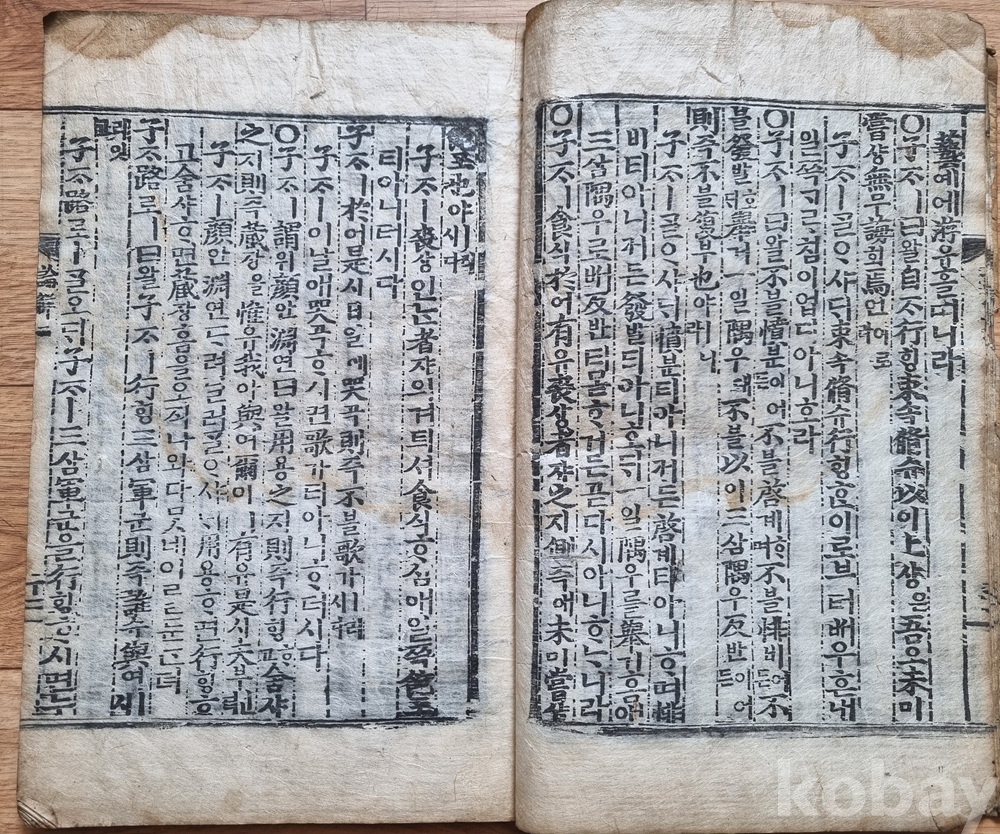 藝예예游유홀띠니라
○子ᄌᆞㅣ曰왈自ᄌᆞ行ᄒᆡᆼ束속脩슈以이上샹은吾오未미
嘗샹無무誨회焉언에로라
子ᄌᆞㅣᄀᆞᆯᄋᆞ샤ᄃᆡ束속脩슈行ᄒᆡᆼ홈이로브터ᄡᅥ우흔내
일쯕ᄀᆞᄅᆞ침이업디아니호라
○子ᄌᆞㅣ曰왈不불憤분이어든不불啓계ᄒᆞ며不불悱비어든不
불發발호ᄃᆡ擧거一일隅우애不불以이三삼隅우反반이어든
則즉不불復부也야ㅣ니라
子ᄌᆞㅣᄀᆞᆯᄋᆞ샤ᄃᆡ憤분티아니커든啓계티아니ᄒᆞ며悱
비티아니커든發발티아니호ᄃᆡ一일隅우를擧거홈애
三삼隅우로ᄡᅥ反반티몯ᄒᆞ거든다시아니ᄒᆞᄂᆞ니라
○子ᄌᆞㅣ食식於어有유喪상者쟈之지側측애未미嘗샹
포也야ㅣ러시다
子ᄌᆞㅣ喪상인ᄂᆞᆫ者쟈의겨틔셔食식ᄒᆞ심애일쯕飽포
티아니터시다
子ᄌᆞㅣ於어是시日일에哭곡則즉不불歌가ㅣ러시다
子ᄌᆞㅣ이날애哭곡ᄒᆞ시면歌가티아니ᄒᆞ더시다
○子ᄌᆞㅣ謂위顔안淵연曰왈用용之지則즉行ᄒᆡᆼᄒᆞ고舍샤
之지則즉藏장을惟유我아與여爾이ㅣ有유是시夫부ㅣㄴ뎌
子ᄌᆞㅣ顔안淵연ᄃᆞ려닐러ᄀᆞᆯᄋᆞ샤ᄃᆡ用용ᄒᆞ면行ᄒᆡᆼᄒᆞ
고舍샤ᄒᆞ면藏장홈을오직나와다ᄆᆞᆺ네이ㄹ룬뎌
子ᄌᆞ路로ㅣ曰왈子ᄌᆞㅣ行ᄒᆡᆼ三삼軍군則즉誰슈與여ㅣ시
리잇고
子ᄌᆞ路로ㅣᄀᆞᆯ오ᄃᆡ子ᄌᆞㅣ三삼軍군을行ᄒᆡᆼᄒᆞ시면누
kobay